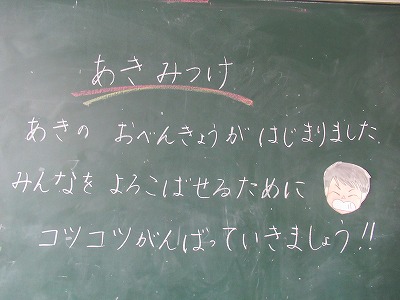 あきみつけ
あきの おべんきょうが はじまりました
みんなを よろこばせるために
コツコツがんばっていきましょう!!